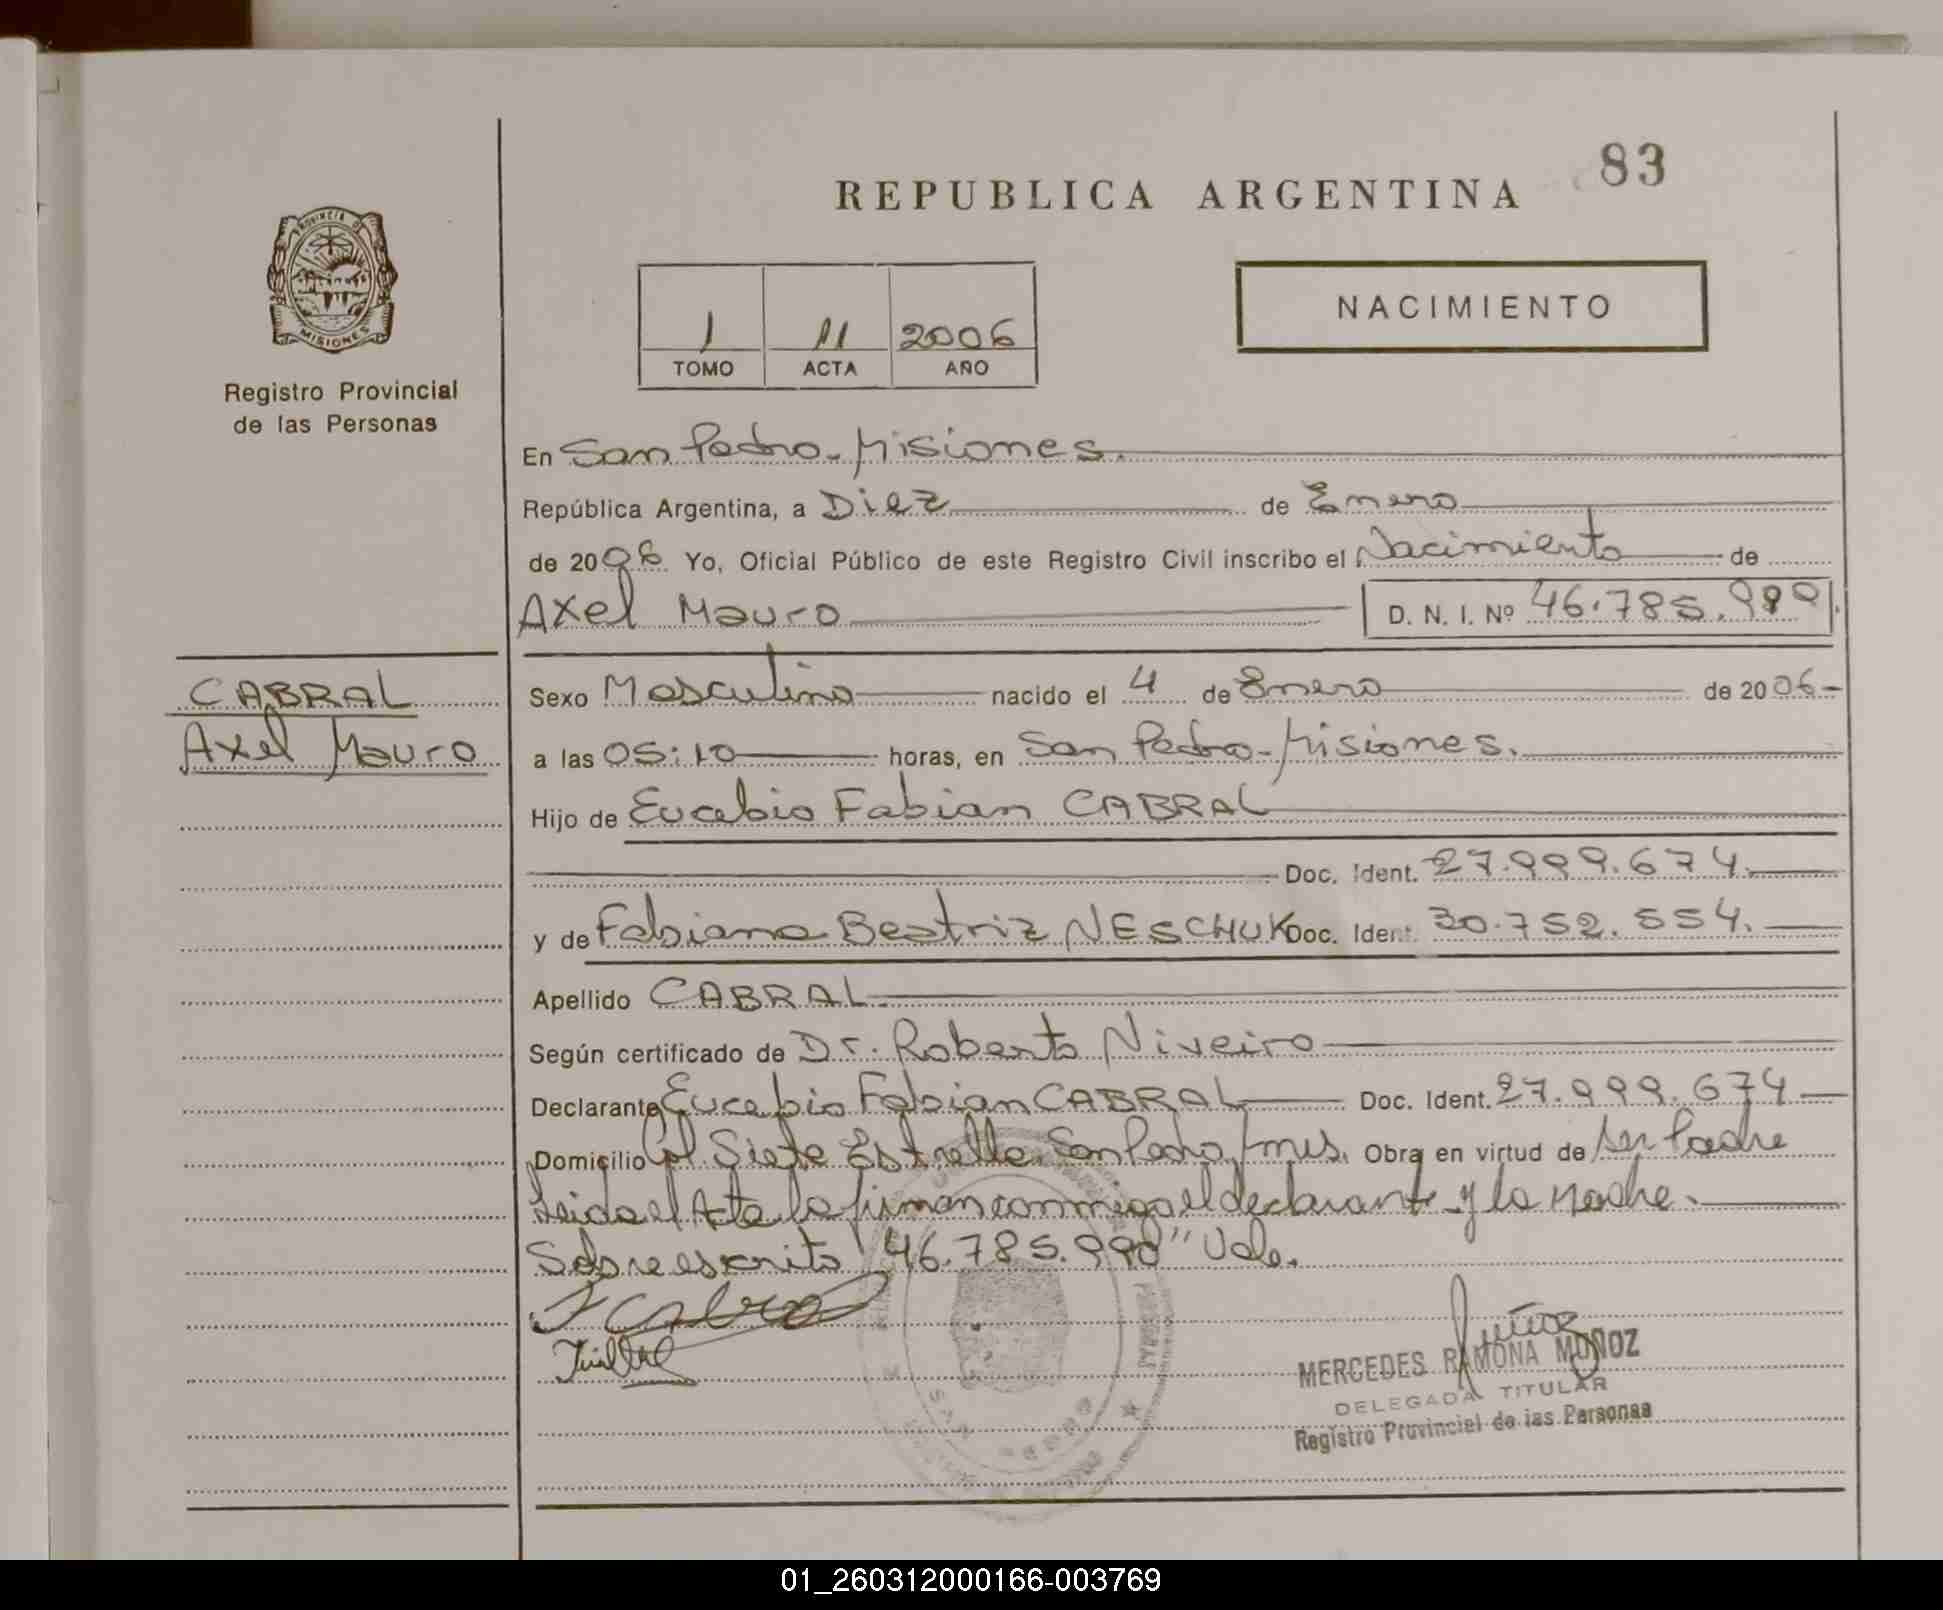 83
REPUBLICA ARGENTINA
PROVINCIA DE
MISIONES
NACIMIENTO
1 11 2006
TOMO ACTA AÑO
Registro Provincial
de las Personas
En San Pedro - Misiones.
República Argentina, a Diez de Enero
de 2006 Yo, Oficial Público de este Registro Civil inscribo el Nacimiento de
Axel Mauro D. N. I. Nº 46.785.990
CABRAL
Axel Mauro
Sexo Masculino nacido el 4 de Enero de 2006-
a las 05:10 horas, en San Pedro - Misiones.
Hijo de Eucebio Fabian CABRAL
Doc. Ident. 27.999.674.
y de Fabiana Beatriz NESCHUK Doc. Ident. 30.752.554.
Apellido CABRAL
Según certificado de Dr. Roberto Niveiro
Declarante Eucebio Fabian CABRAL Doc. Ident. 27.999.674
Domicilio Col. Siete Estrella San Pedro, mnes. Obra en virtud de ser Padre
Leida el Acta la firman conmigo el declarante y la Madre.
Sobreescrito "46.785.990" Vale.
MERCEDES RAMONA MUÑOZ
DELEGADA TITULAR
Registro Provincial de las Personas
01_260312000166-003769